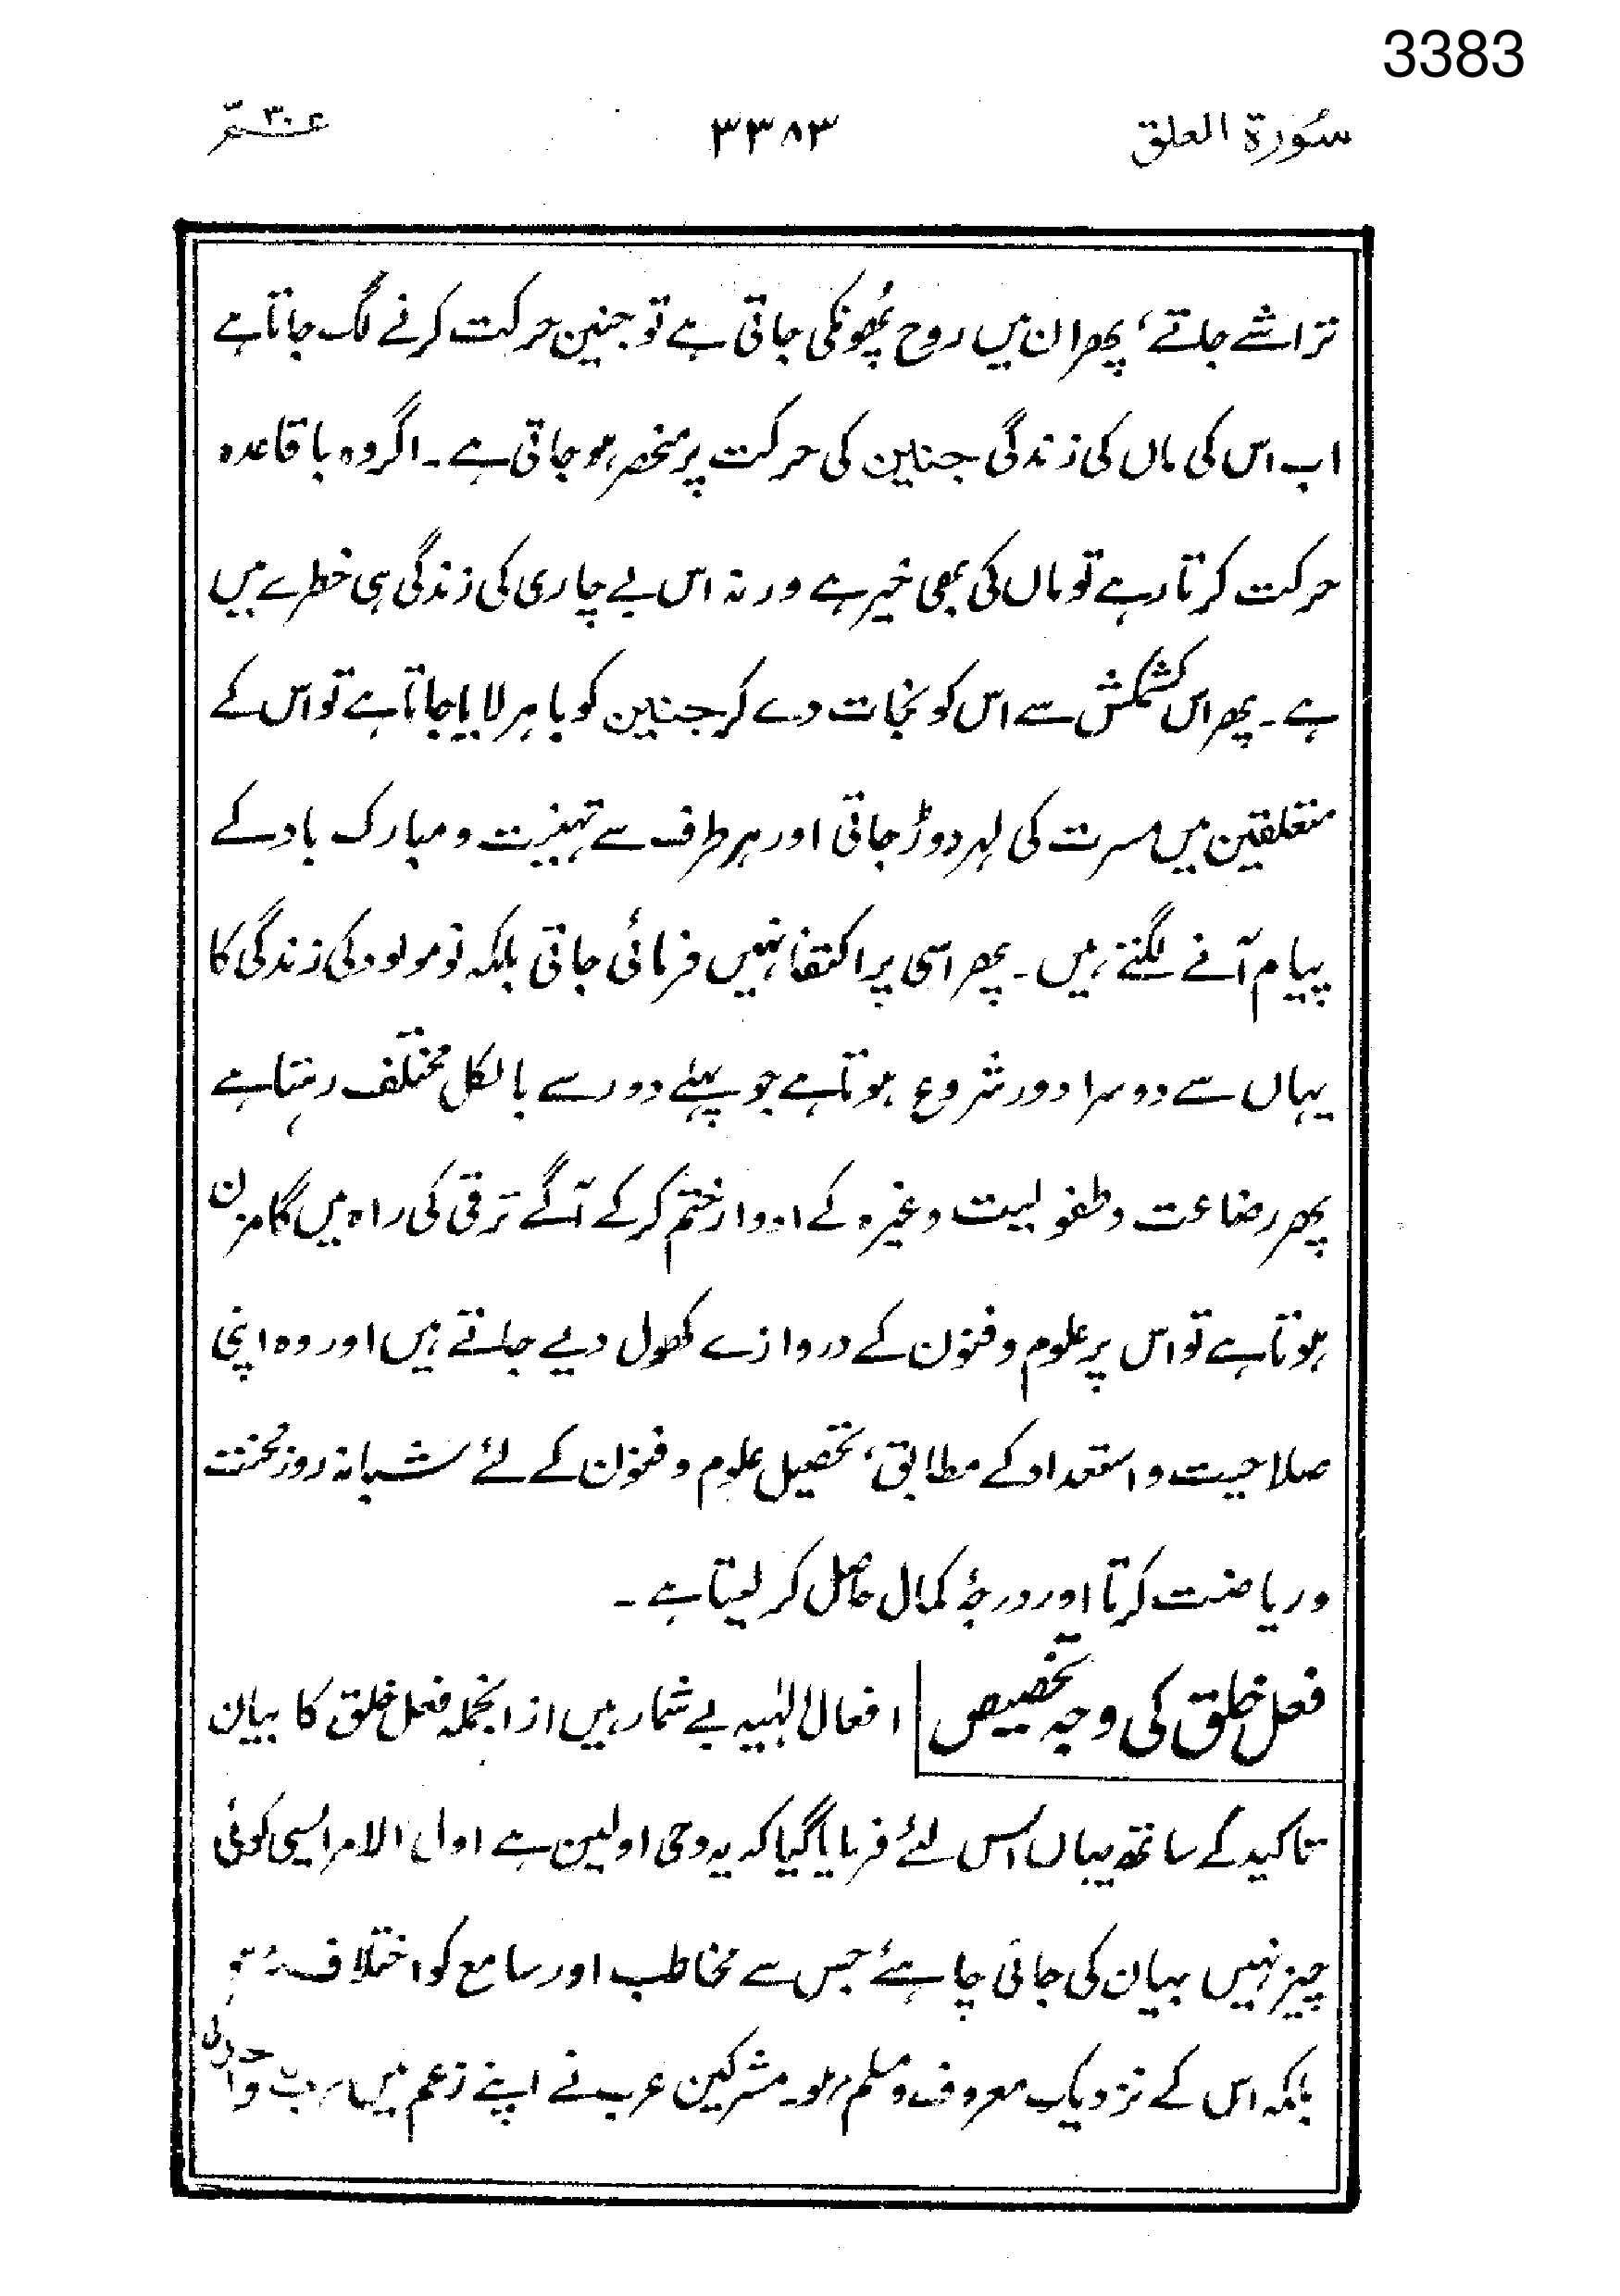 3383
سُورۃ العلق ۳۳۸۳ عمّ ۳۰
تراشے جاتے، پھر ان میں روح پُھونکی جاتی ہے تو جنین حرکت کرنے لگ جاتا ہے
اب اس کی ماں کی زندگی جنین کی حرکت پر منحصر ہو جاتی ہے۔ اگر وہ باقاعدہ
حرکت کرتا رہے تو ماں کی بھی خیر ہے ورنہ اس بے چاری کی زندگی ہی خطرے میں
ہے۔ پھر اس کشمکش سے اس کو نجات دے کر جنین کو باہر لایا جاتا ہے تو اس کے
متعلقین میں مسرت کی لہر دوڑ جاتی اور ہر طرف سے تہنیت و مبارک باد کے
پیام آنے لگتے ہیں۔ پھر اسی پر اکتفا نہیں فرمائی جاتی بلکہ نومولود کی زندگی کا
یہاں سے دوسرا دور شروع ہوتا ہے جو پہلے دور سے بالکل مختلف رہتا ہے
پھر رضاعت و طفولیت وغیرہ کے ادوار ختم کر کے آگے ترقی کی راہ میں گامزن
ہوتا ہے تو اس پر علوم و فنون کے دروازے کھول دیے جاتے ہیں اور وہ اپنی
صلاحیت و استعداد کے مطابق، تحصیل علوم و فنون کے لئے شبانہ روز محنت
و ریاضت کرتا اور درجۂ کمال حاصل کر لیتا ہے۔
فعل خلق کی وجہ تخصیص افعال الٰہیہ بے شمار ہیں ازانجملہ فعل خلق کا بیان
تاکید کے ساتھ یہاں اس لئے فرمایا گیا کہ یہ وحی اولین ہے اول الامر ایسی کوئی
چیز نہیں بیان کی جانی چاہئے جس سے مخاطب اور سامع کو اختلاف ہو
بلکہ اس کے نزدیک معروف و مسلم ہو۔ مشرکین عرب نے اپنے زعم میں رب